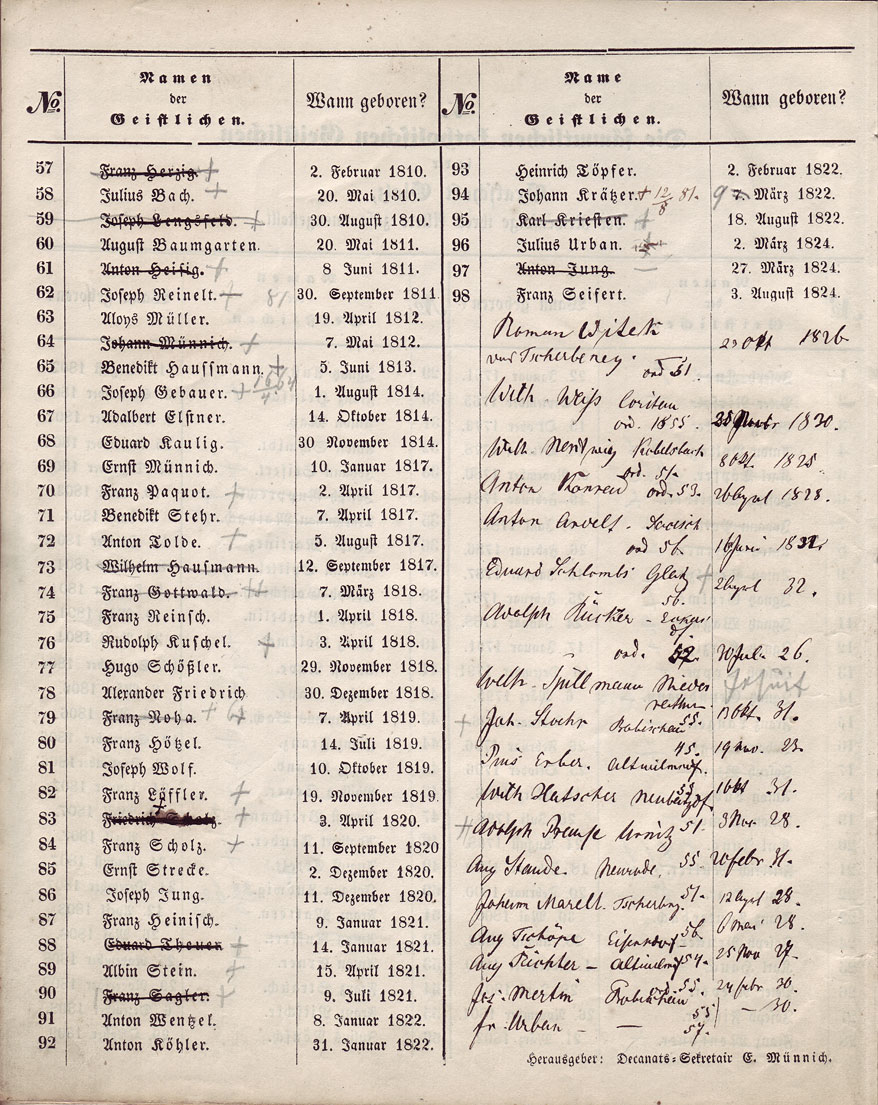 No.
Namen
der
Geistlichen.
Wann geboren?
57 Franz Herzig. 2. Februar 1810.
58 Julius Bach. 20. Mai 1810.
59 Joseph Lengsfeld. 30. August 1810.
60 August Baumgarten. 20. Mai 1811.
61 Anton Heisig. 8 Juni 1811.
62 Joseph Reinelt. 81 30. September 1811
63 Aloys Müller. 19. April 1812.
64 Johann Münnich. 7. Mai 1812.
65 Benedikt Hauffmann. 5. Juni 1813.
66 Joseph Gebauer. 1. August 1814.
67 Adalbert Elstner. 14. Oktober 1814.
68 Eduard Kaulig. 30 November 1814.
69 Ernst Münnich. 10. Januar 1817.
70 Franz Paquot. 2. April 1817.
71 Benedikt Stehr. 7. April 1817.
72 Anton Tolde. 5. August 1817.
73 Wilhelm Hausmann. 12. September 1817.
74 Franz Gottwald. 7. März 1818.
75 Franz Reinsch. 1. April 1818.
76 Rudolph Kuschel. 3. April 1818.
77 Hugo Schößler. 29. November 1818.
78 Alexander Friedrich 30. Dezember 1818.
79 Franz Noha. 7. April 1819.
80 Franz Hötzel. 14. Juli 1819.
81 Joseph Wolf. 10. Oktober 1819.
82 Franz Löffler. 19. November 1819.
83 Friedrich Scholz. 3. April 1820.
84 Franz Scholz. 11. September 1820
85 Ernst Strecke. 2. Dezember 1820.
86 Joseph Jung. 11. Dezember 1820.
87 Franz Heinisch. 9. Januar 1821.
88 Eduard Theuer 14. Januar 1821.
89 Albin Stein. 15. April 1821.
90 Franz Sagler. 9. Juli 1821.
91 Anton Wentzel. 8. Januar 1822.
92 Anton Köhler. 31. Januar 1822.
No.
Name
der
Geistlichen.
Wann geboren?
93 Heinrich Töpfer. 2. Februar 1822.
94 Johann Krätzer. + 12/8 81. 9 7. März 1822.
95 Karl Kriesten. 18. August 1822.
96 Julius Urban. 2. März 1824.
97 Anton Jung. 27. März 1824.
98 Franz Seifert. 3. August 1824.
Roman Witek 23 Okt 1826
Tscherbeney.
ord 51
Wilh. Weiß
ord. 1855. 1830.
Wilh. Nentwig 8 Okt. 1825
ord. 51.
Anton Konrad ord. 53. 26 April 1828.
Anton
ord 56. 16 Juni
Eduard Glatz April 32.
56.
Adolph Rücker
ord. 30 Juli 26.
Wilh. Spillmann Jesuit
Joh. 55. 13 Okt. 31.
45. 19 Nov. 23.
Pius Erber. Altwilmsdorf.
Wilh Hatscher 1 Okt 31.
Adolph 51. 3 Nov. 28.
Aug Staude. Neurode. 55. 20 Febr 31.
Joachim Tscherbny. 51. 12 April 28.
Aug Tschöpe Eisersdorf 56. 6 Mai 28.
Aug Richter – Altwilmsdf 54. 25 Nov 27.
Jos. Mertin 55. 24 Febr 30.
fr. Urban – 57. – 30.
Herausgeber: Decanats-Sekretair E. Münnich.